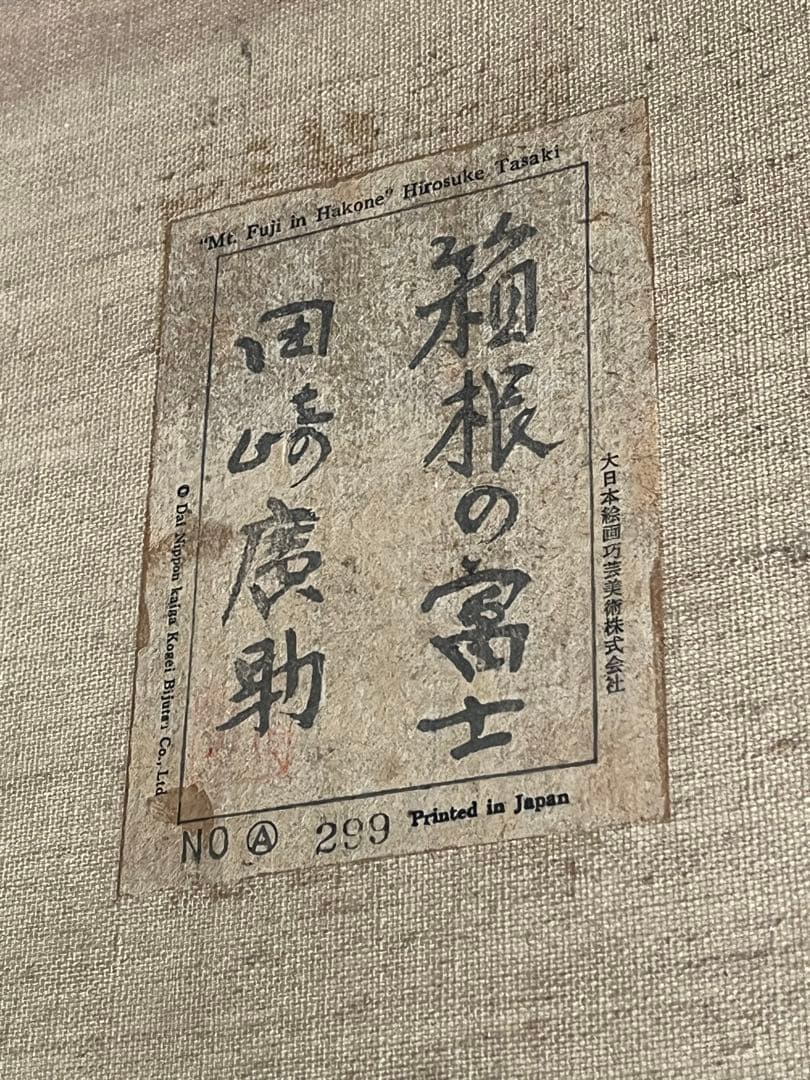 "Mt. Fuji in Hakone" Hirosuke Tasaki
箱根の富士
田崎廣助
大日本絵画巧芸美術株式会社
© Dai Nippon kaiga Kogei Bijutsu Co., Ltd
NO Ⓐ 299
Printed in Japan